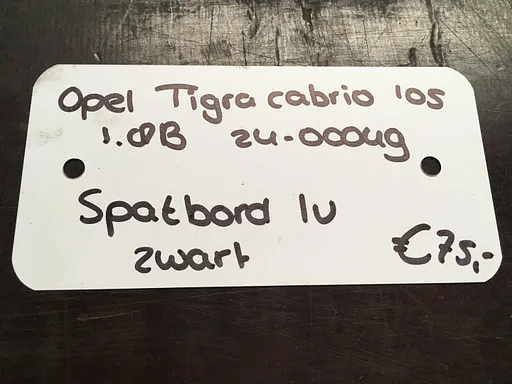 Opel Tigra cabrio '05
1.8B 24-00049
Spatbord lv
zwart
€75,-